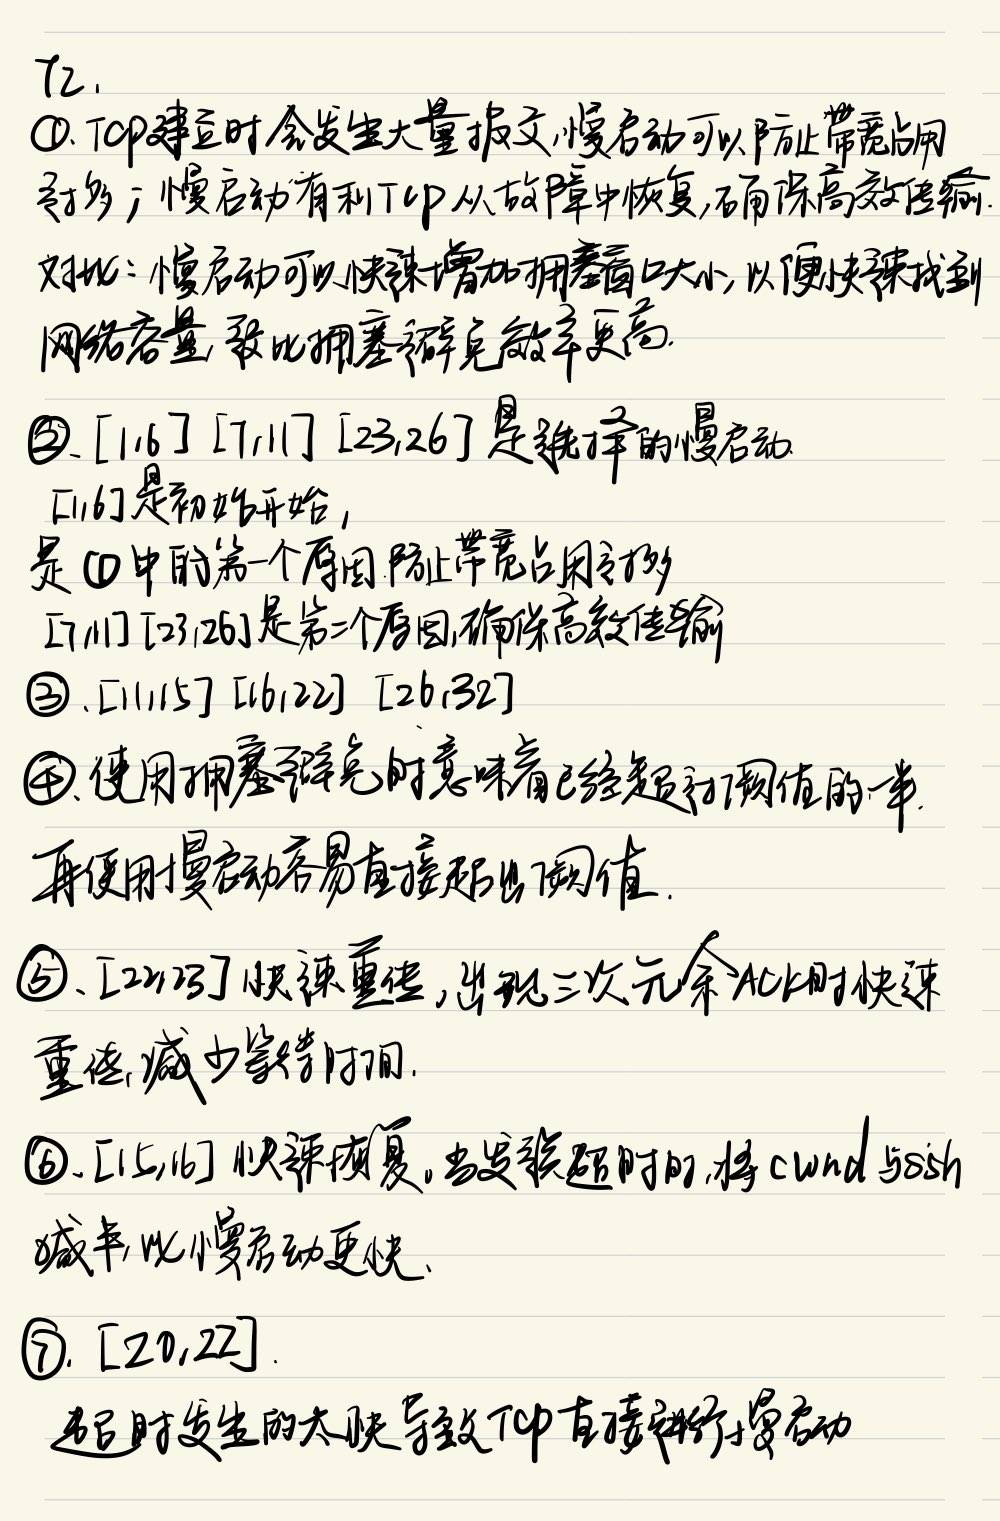 T2.
①. TCP建立时会发生大量报文,慢启动可以防止带宽占用
过多；慢启动有利TCP从故障中恢复,确保高效传输.
对比：慢启动可以快速增加拥塞窗口大小,以便快速找到
网络容量,致比拥塞避免效率更高.
②、[1,6] [7,11] [23,26] 是选择的慢启动.
[1,6]是初始开始,
是①中的第一个原因.防止带宽占用过多
[7,11] [23,26]是第二个原因,确保高效传输
③、[11,15] [16,22] [26,32]
④、使用拥塞避免时意味着已经超过了阈值的一半.
再使用慢启动容易直接超出了阈值.
⑤、[22,23]快速重传,出现三次冗余ACK时快速
重传,减少等待时间.
⑥、[15,16] 快速恢复。当发送超时时,将cwnd与ssh
减半,比慢启动更快、
⑦. [20,22].
超时发生的太快导致TCP直接进行慢启动